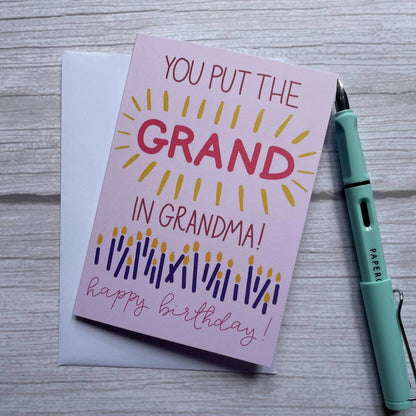 YOU PUT THE
GRAND
IN GRANDMA!
happy birthday!